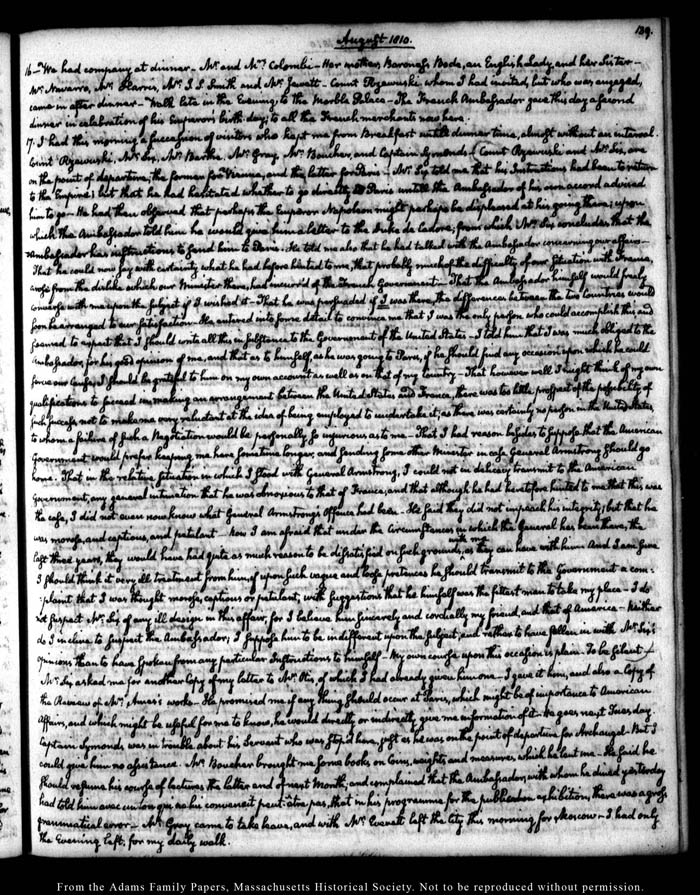 139.
August 1810.
16. We had company at dinner. Mr. and Mrs. Colombi. Her mother Baroness Bode, an English Lady, and her Sister.
Mr. Navarro, Mr. Harris, Mr. J. S. Smith and Mr. Jewett. Count Rzewuski whom I had invited, but who was engaged,
came in after dinner. Walk late in the Evening, to the Marble Palace. The French Ambassador gave this day a second
dinner in celebration of his Emperor's birth-day; to all the French merchants now here.
17. I had this morning a succession of visitors who kept me from Breakfast untill dinner time, almost without an interval.
Count Rzewuski, Mr. Six, Mr. Barthe, Mr. Gray, Mr. Boucher, and Captain Symonds. Count Rzewuski and Mr. Six, are
on the point of departure, the former for Vienna, and the latter for Paris. Mr. Six told me that his Instructions had been to return
to the Empire; but that he had hesitated whether to go directly to Paris untill the Ambassador of his own accord advised
him to go. He had then observed that perhaps the Emperor Napoleon might perhaps be displeased at his going there; upon
which the Ambassador told him he would give him a letter to the Duke de Cadore; from which Mr. Six concludes that the
Ambassador has instructions to send him to Paris. He told me also that he had talked with the Ambassador concerning our affairs.
That he could now say with certainty what he had before hinted to me, that probably much of the difficulty of our situation with France,
arose from the dislike which our Minister there, had incurr'd of the French Government. That the Ambassador himself would freely
converse with me upon the subject if I wished it. That he was persuaded if I was there, the differences between the two Countries would
soon be arranged to our satisfaction. He entered into some detail to convince me that I was the only person who could accomplish this and
seemed to expect that I should write all this in substance to the Government of the United States. I told him that I was much obliged to the
Ambassador, for his good opinion of me, and that as to himself, as he was going to Paris, if he should find any occasion upon which he could
serve our Cause, I should be grateful to him on my own account as well as on that of my Country. That however well I might think of my own
qualifications to succeed in making an arrangement between the United States and France, there was too little prospect of the possibility of
such success not to make me very reluctant at the idea of being employed to undertake it; as there was certainly no person in the United States,
to whom a failure of such a Negotiation would be personally so injurious as to me. That I had reason besides to suppose that the American
Government would prefer keeping me here sometime longer, and sending some other Minister in case General Armstrong should go
home. That in the relative situation in which I stood with General Armstrong, I could not in delicacy transmit to the American
Government, any general intimation that he was obnoxious to that of France, and that although he had heretofore hinted to me that this was
the case, I did not even now know what General Armstrong's offence had been. He said they did not impeach his integrity; but that he
was morose, and captious, and petulant. Now I am afraid that under the Circumstances in which the General has been there, the
last three years, they would have had quite as much reason to be dissatisfied on such grounds, with me as they can have with him. And I am sure
I should think it very ill treatment from him, if upon such vague and loose pretences he should transmit to the Government a com-
plaint that I was thought morose, captious or petulant, with suggestions that he himself was the fittest man to take my place. I do
not suspect Mr. Six of any ill design in this affair, for I believe him sincerely and cordially my friend, and that of America. Neither
do I incline to suspect the Ambassador; I suppose him to be indifferent upon the subject, and rather to have fallen in with Mr. Six's
opinions than to have spoken from any particular Instructions to himself. My own course upon this occasion is plain. To be silent.
Mr. Six asked me for another Copy of my letter to Mr. Otis, of which I had already given him one. I gave it him, and also a Copy of
the Review of Mr. Ames's works. He promised me if any thing should occur at Paris, which might be of importance to American
Affairs, and which might be useful for me to know, he would directly or indirectly give me information of it. He goes next Tuesday.
Captain Symonds was in trouble about his Servant who was stop'd here, just as he was on the point of departure for Archangel. But I
could give him no assistance. Mr. Boucher brought me some books on Coins, weights, and measures, which he lent me. He said he
should resume his course of lectures the latter end of next Month; and complained that the Ambassador, with whom he dined yesterday
had told him avec un ton qui ne lui convenait peut-être pas, that in his programme for the publication exhibition, there was a gross
grammatical error. Mr. Gray came to take leave, and with Mr. Everett left the City this morning for Moscow. I had only
the Evening left, for my daily walk.
From the Adams Family Papers, Massachusetts Historical Society. Not to be reproduced without permission.